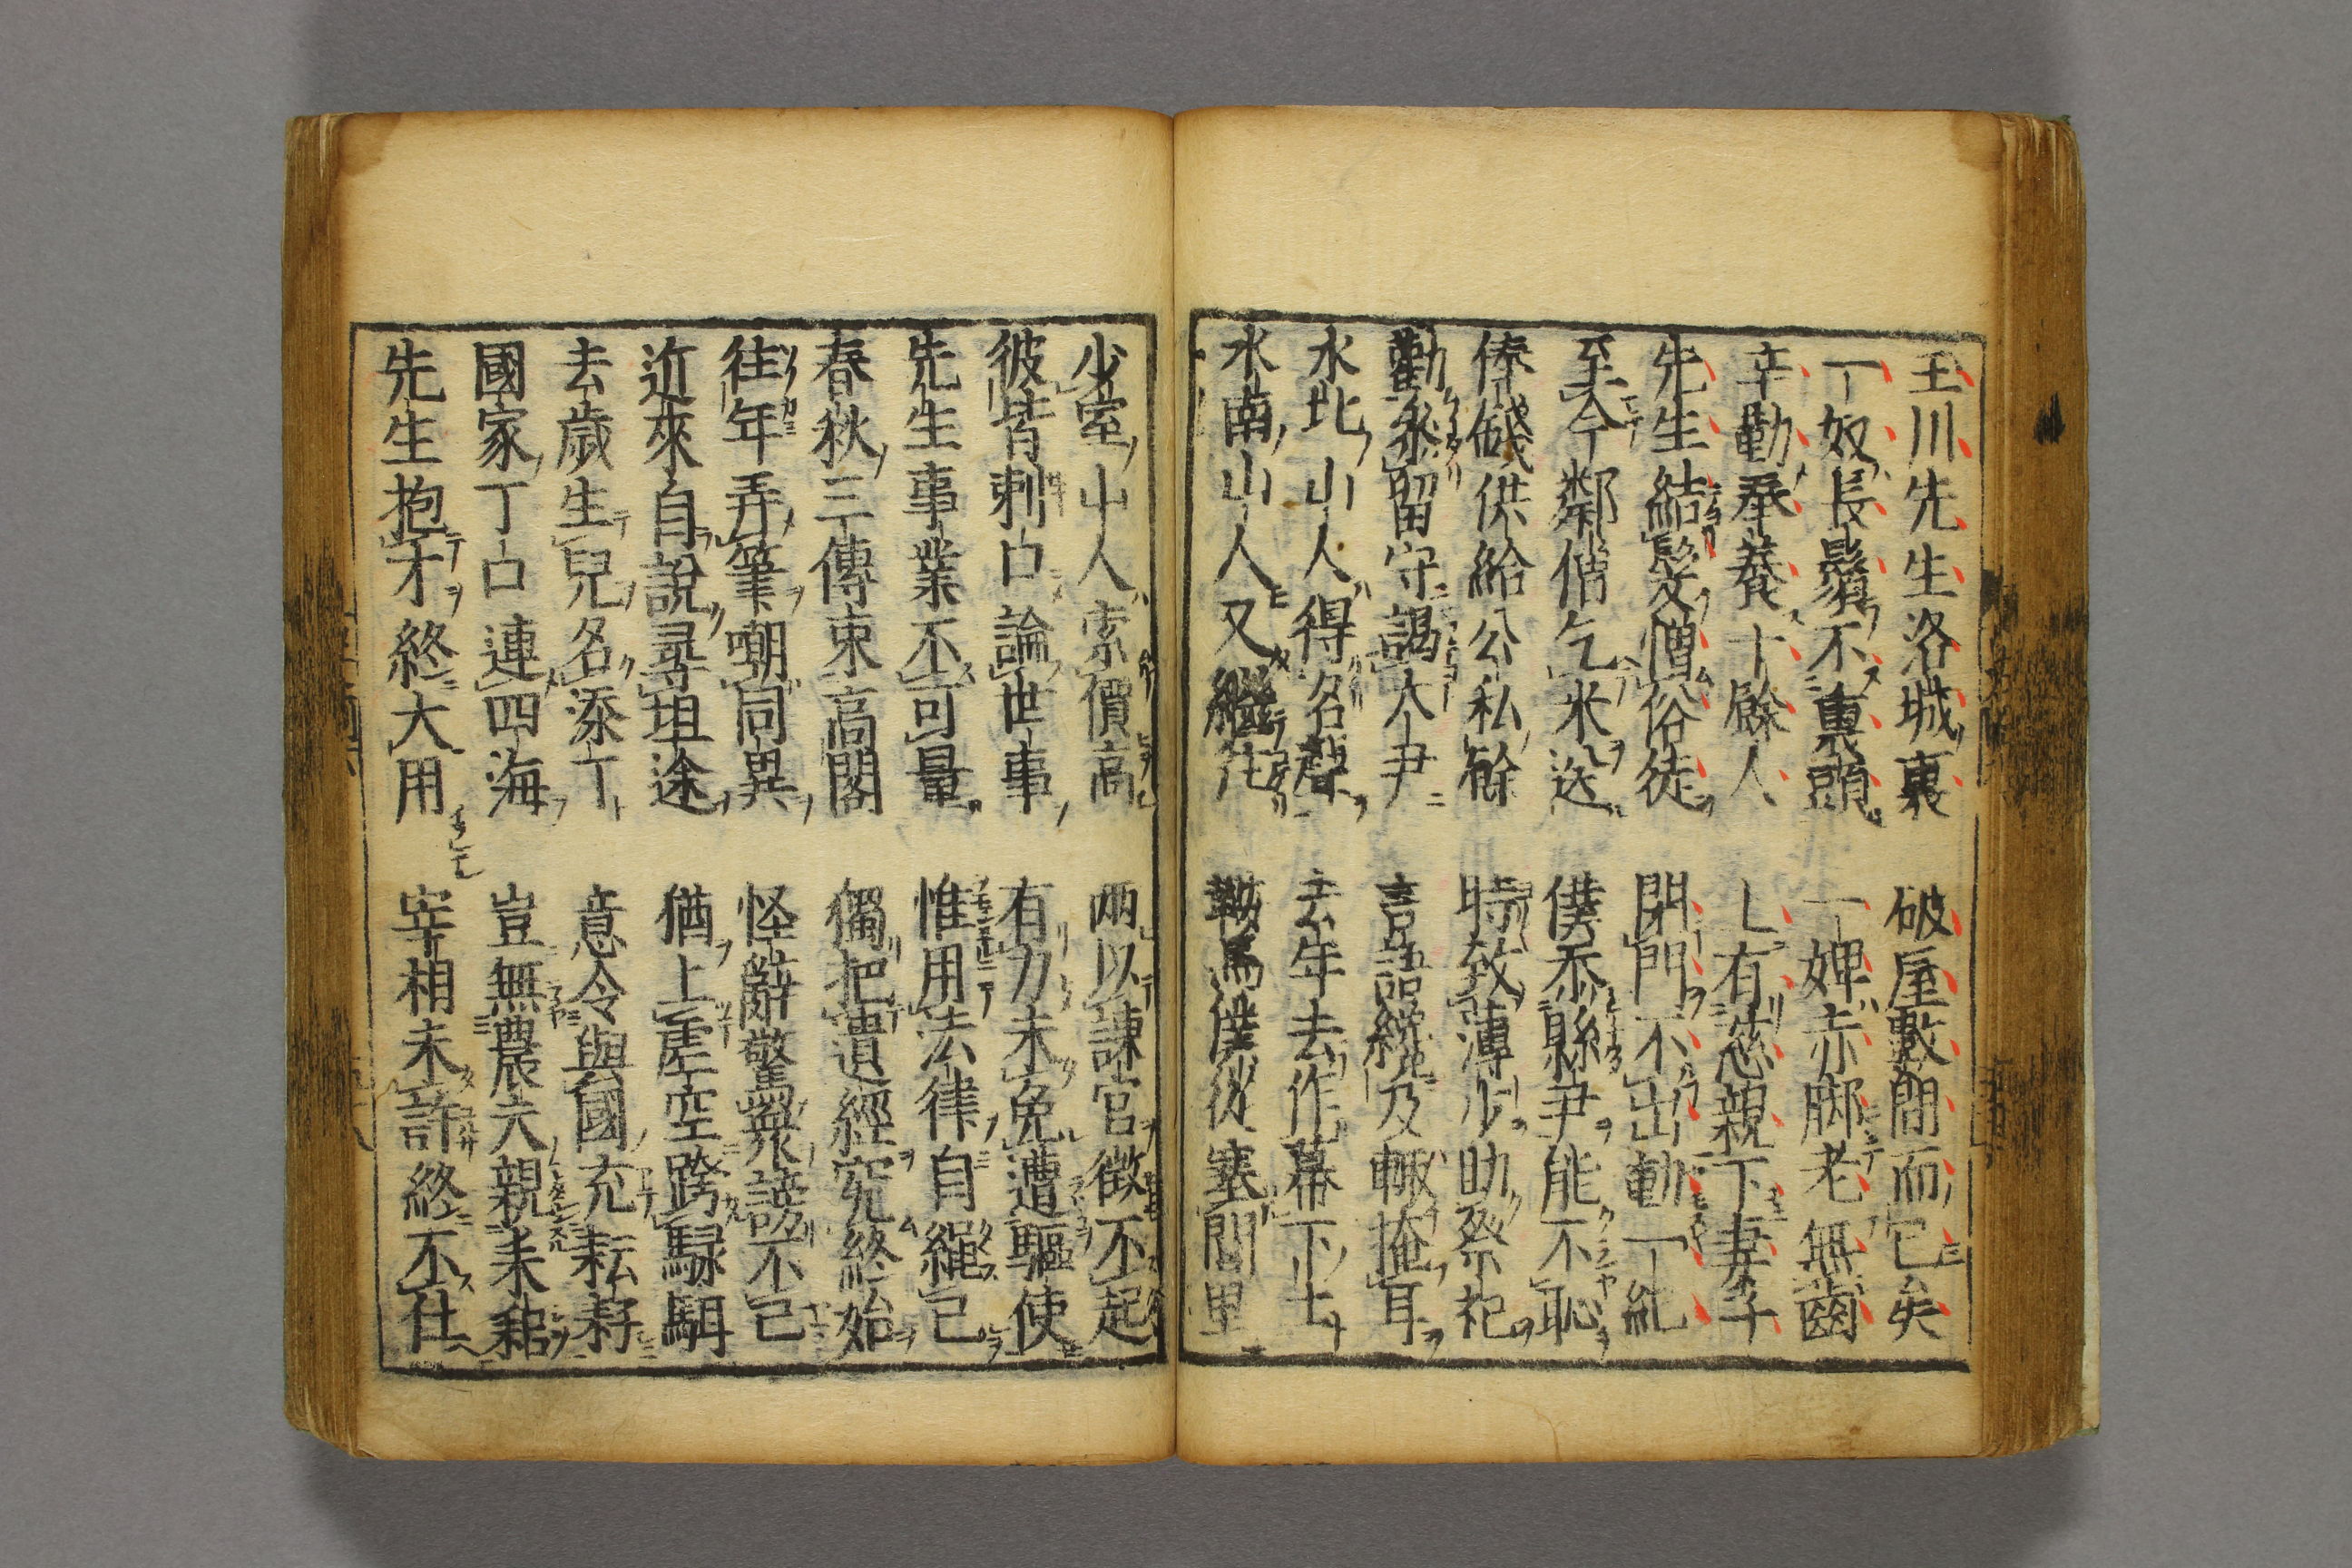 玉川先生洛城裏　破屋數間而已矣
一奴長鬚不裹頭　一婢赤脚老無齒
辛勤奉養十餘人　上有慈親下妻子
先生結髮憎俗徒　閉門不出動一紀
至今鄰僧乞米送　僕忝縣尹能不恥
俸錢供給公私餘　時致薄少助祭祀
勸參留守謁大尹　言語纔及輙掩耳
水北山人得名聲　去年去作幕下士
水南山人又繼徃　鞍馬僕從塞閭里
少室山人索價高　两以諫官徴不起
彼皆刺口論世事　有力未免遭驅使
先生事業不可量　惟用法律自繩己
春秋三傳束高閣　獨把遺經究終始
往年弄筆嘲同異　怪辭驚衆謗不已
近來自說尋坦途　猶上虗空跨騄駬
去歲生兒名添丁　意令與國充耘耔
國家丁口連四海　豈無農夫親耒耜
先生抱才終大用　宰相未許終不仕